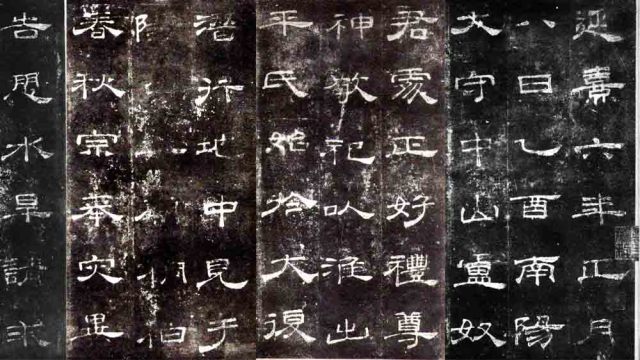 延熹六年正月
八日乙酉南陽
大守中山盧奴
君處正好禮尊
神敬祀以淮出
平氏始於大復
潛行地中見于
桐柏
春秋宗奉灾異
告愬水旱請求